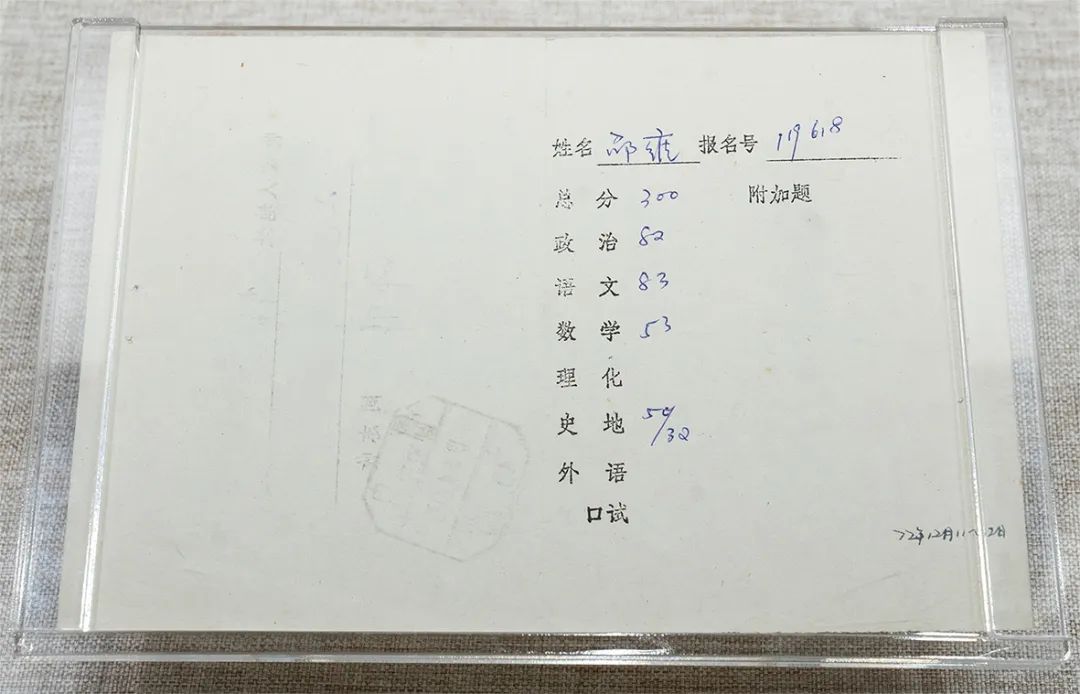 姓名 祁雍 报名号 119618
总分 300 附加题
政治 82
语文 83
数学 53
理化
史地 50/32
外语
口试
77年12月11~12日